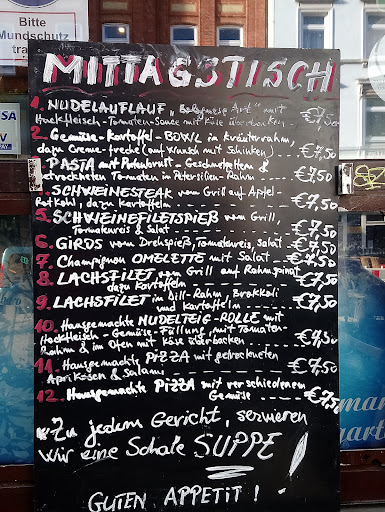 Bitte
Mundschutz
MITTAGSTISCH
1. NUDELAUFLAUF „Bolognese Art" mit
Hackfleisch-Tomaten-Sauce mit Käse überbacken €7,50
2. Gemüse-Kartoffel-BOWL in Kräuterrahm,
dazu Creme-freche (auf Wunsch mit Schinken) €7,50
PASTA mit Putenbrust-Geschnetzeltem &
getrockneten Tomaten in Petersilien-Rahm €7,50
SCHWEINESTEAK vom Grill auf Apfel-
Rotkohl, dazu Kartoffeln €7,50
5. SCHWEINEFILETSPIEß vom Grill,
Tomatenreis & Salat €7,50
6. GIROS vom Drehspieß, Tomatenreis, Salat €7,50
7. Champignon OMELETTE mit Salat €7,50
8. LACHSFILET vom Grill auf Rahmspinat
dazu Kartoffeln €7,50
9. LACHSFILET in Dill-Rahm, Brokkoli
und Kartoffeln €7,50
10. Hausgemachte NUDELTEIG-ROLLE mit
Hackfleisch-Gemüse-Füllung, mit Tomaten-
Rahm & im Ofen mit Käse überbacken €7,50
11. Hausgemachte PIZZA mit getrockneten
Aprikosen & Salami €7,50
12. Hausgemachte PIZZA mit verschiedenem
Gemüse €7,50
Zu jedem Gericht, servieren
Wir eine Schale SUPPE!
GUTEN APPETIT!